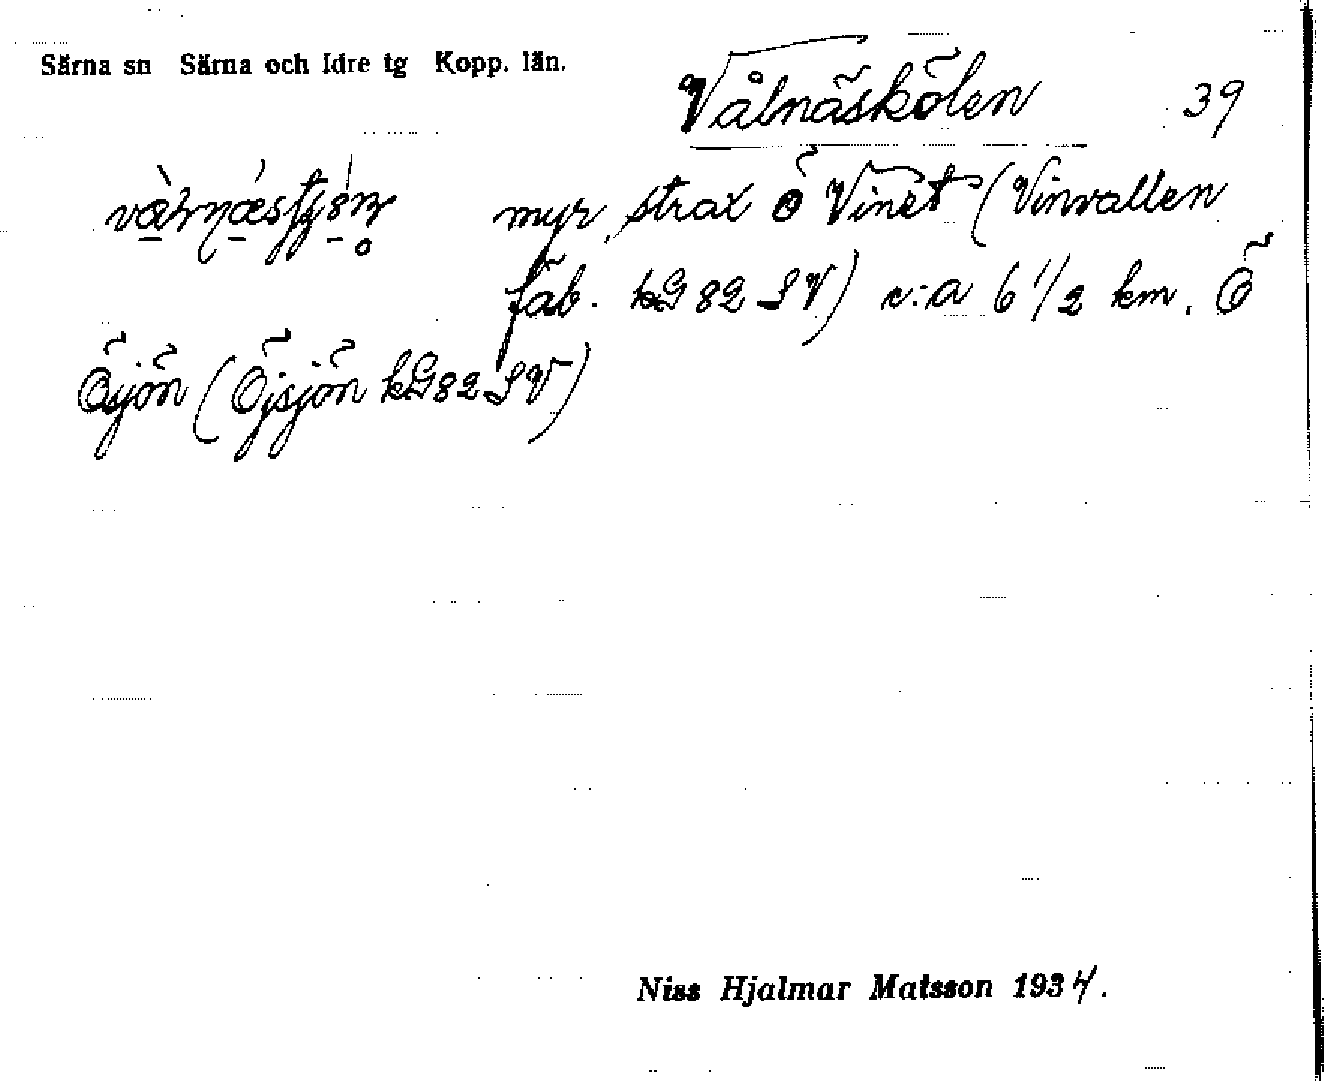 Särna sn Särna och Idre tg Kopp. län.
Vålnäskölen 39
myr, strax ö Vinet (Vinvallen
fäb. kG 82 SV) c:a 6 1/2 km. Ö
Ösjön (Öjsjön kG 82 SV)
Niss Hjalmar Matsson 1934.